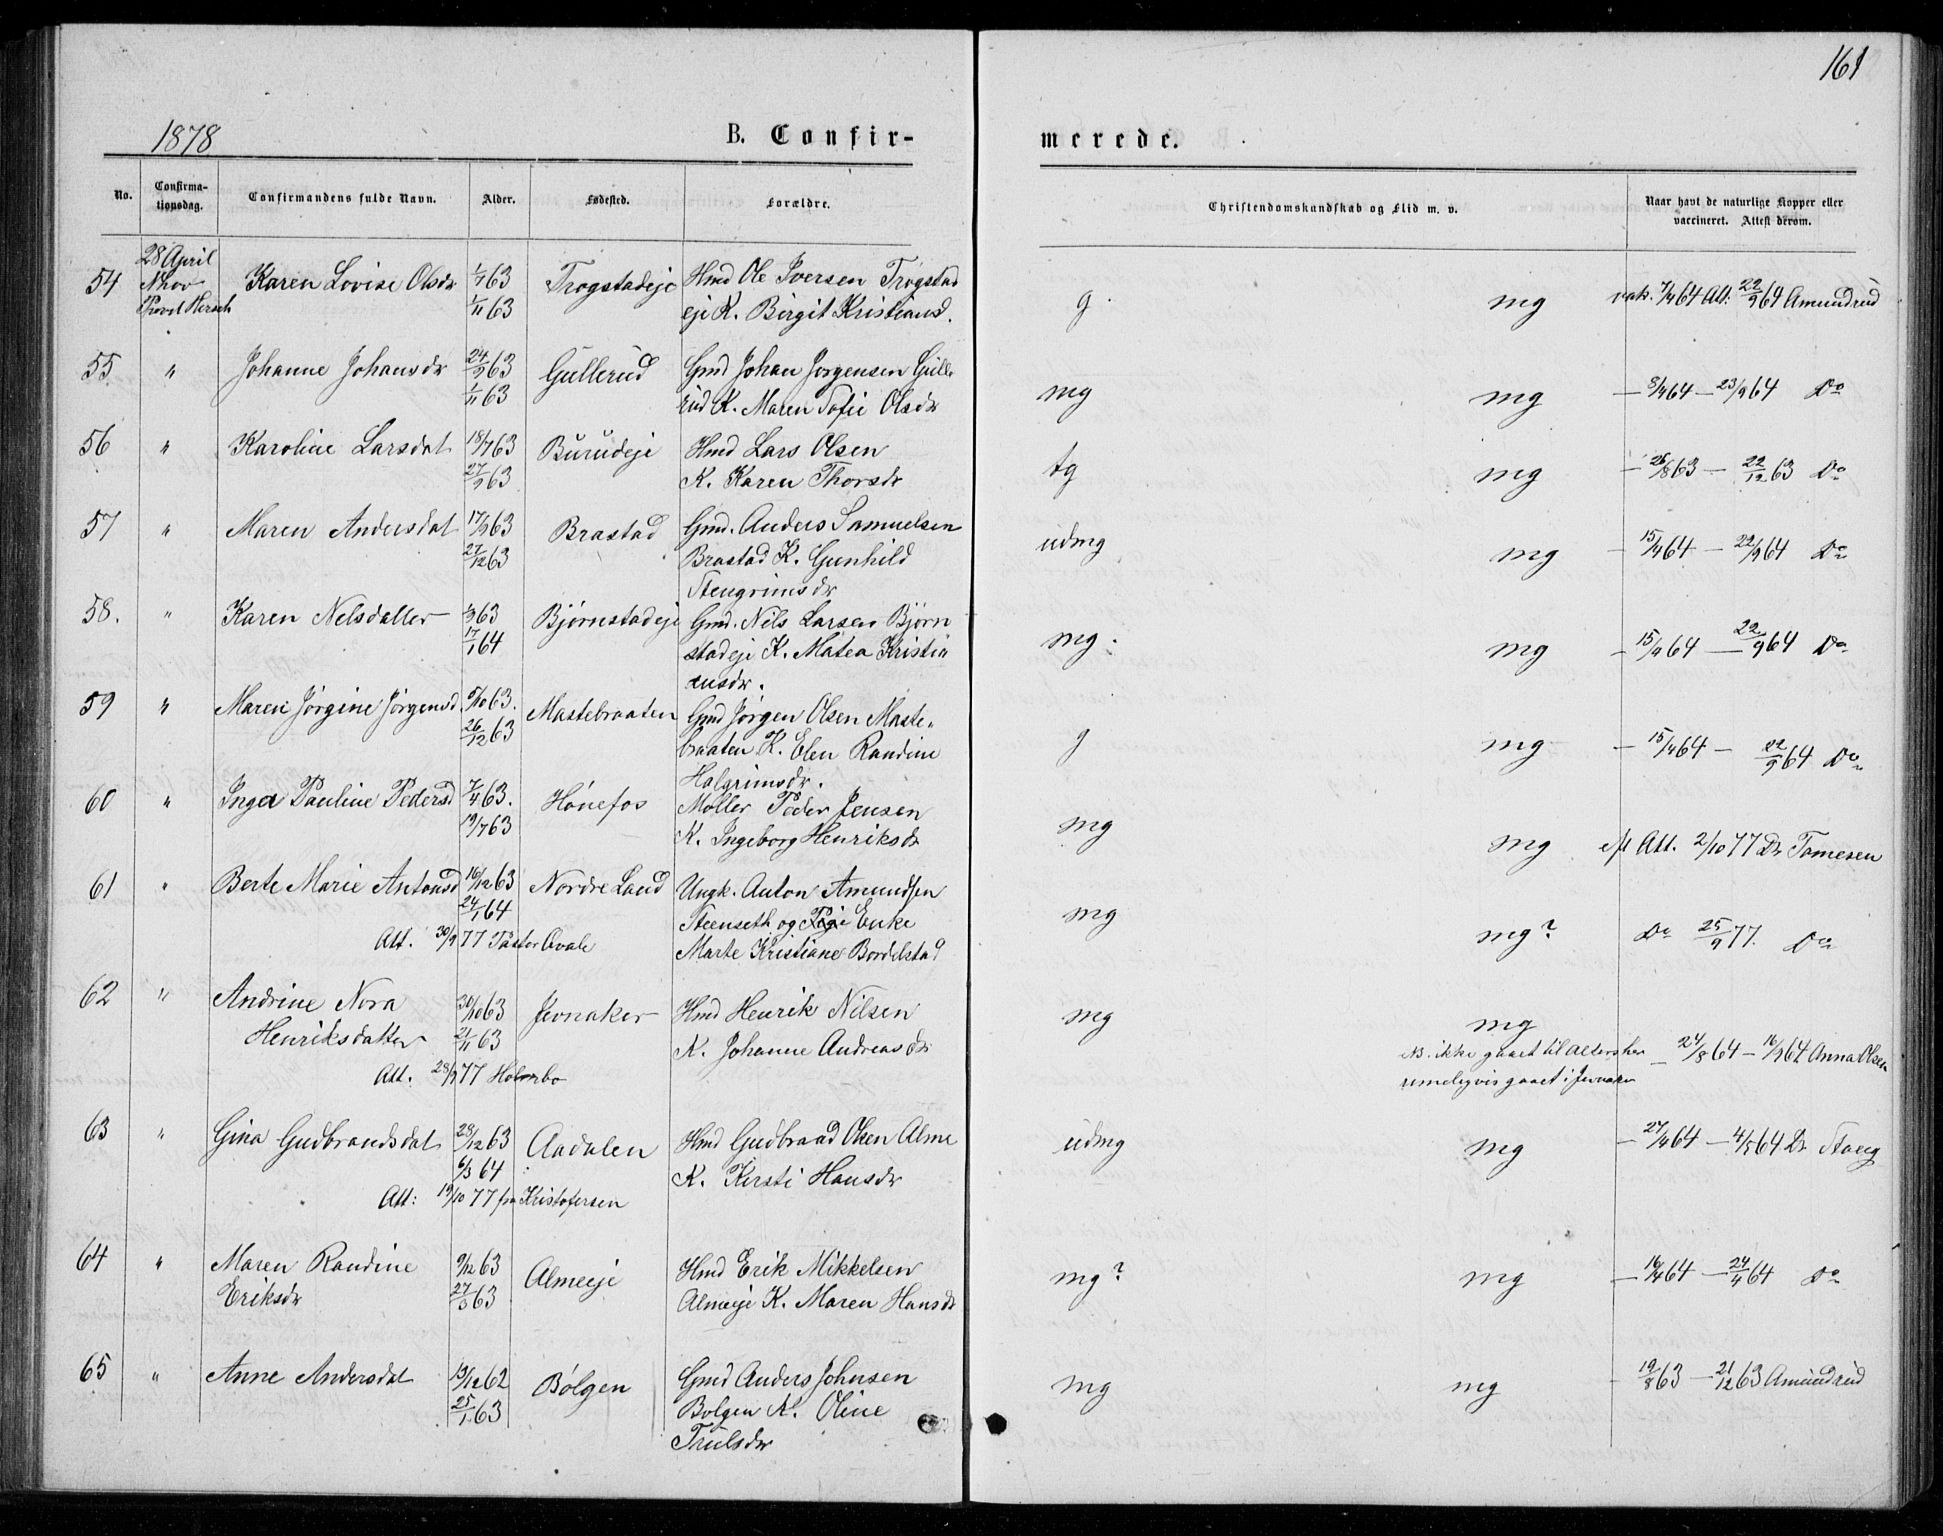 161
1878
B. Confir-
merede.
No.
Confirma-
tionsdag.
Confirmandens fulde Navn.
Alder.
Fødested.
Forældre.
Christendomskundskab og Flid m. v.
Naar havt de naturlige Kopper eller
vaccineret. Attest derom.
28 April
54 Karen Lovise Olsdr 63 Trøgstadeje Hmd Ole Iversen Trøgstad g. mg vak. 7/9 64 Att. 22/9 64 Amundrud
1/11 63 eje K. Birgit Kristiansd.
55 " Johanne Johansdr 24/9 63 Gullerud Gmd Johan Jørgensen Gulle mg mg — 8/9 64 — 23/9 64 Do
1/11 63 rud K. Maren Sofie Olsdr
56 " Karoline Larsdat 18/7 63 Burudeje Hmd Lars Olsen tg mg — 26/8 63 — 22/12 63 Do
27/9 63 K. Karen Thorsdr
57 " Maren Andersdat 17/9 63 Brastad Gmd. Anders Samuelsen udmg mg — 15/9 64 — 22/9 64 Do
27/12 63 Brastad K. Gunhild
Stengrimsdr
58. " Karen Nelsdatter 63 Bjørnstadeje Gmd. Nils Larsen Bjørn mg. mg — 15/9 64 — 22/9 64 Do
17/1 64 stadeje K. Matea Kristi
ansdr.
59 " Maren Jørgine Jørgensd 63. Mastebraaten Gmd Jørgen Olsen Maste- g mg — 15/9 64 — 22/9 64 Do
26/12 63 braaten K. Elen Randine
Halgrimsdr.
60 " Inga Pauline Pedersd 7/4 63. Hønefos Møller Peder Jensen mg mg eft Att. 2/10 77 Dr Tomesen
19/7 63 K. Ingeborg Henriksdr
61 " Berte Marie Antonsd 16/12 63 Nordre Land Ungk. Anton Amundsen mg mg? Do 25/9 77. Do
24/1 64 Steenseth og Enke
Att. 30/9 77 Marte Kristiane Bordelstad
62 " Andrine Nora 30/10 63 Jevnaker Hmd Henrik Nilsen mg mg
Henriksdatter 21/11 63 K. Johanne Andreasdr NB. ikke gaaet til Alters her — 24/8 64 — 16/9 64 Anna Olsen
Att. 28/9 77 Holmbo rimeligvis gaaet i Jevnaker
63 " Gina Gudbrandsdat 28/12 63 Aadalen Hmd Gudbrand Olsen Alme udmg mg — 27/4 64 — 4/5 64 Dr Stang
6/3 64 K. Kirsti Hansdr
Att: 19/10 77 fra Kristofersen
64 " Maren Randine 9/12 63 Almeeje Hmd Erik Mikkelsen mg? mg — 16/4 64 — 24/4 64 Do
Eriksdr 63 Almeeje K. Maren Hansdr
65 " Anne Andersdat 13/12 62 Bølgen Gmd Anders Johnsen mg mg — 19/8 63 — 21/12 63 Amundrud
25/1 63 Bølgen K. Oline
Trulsdr